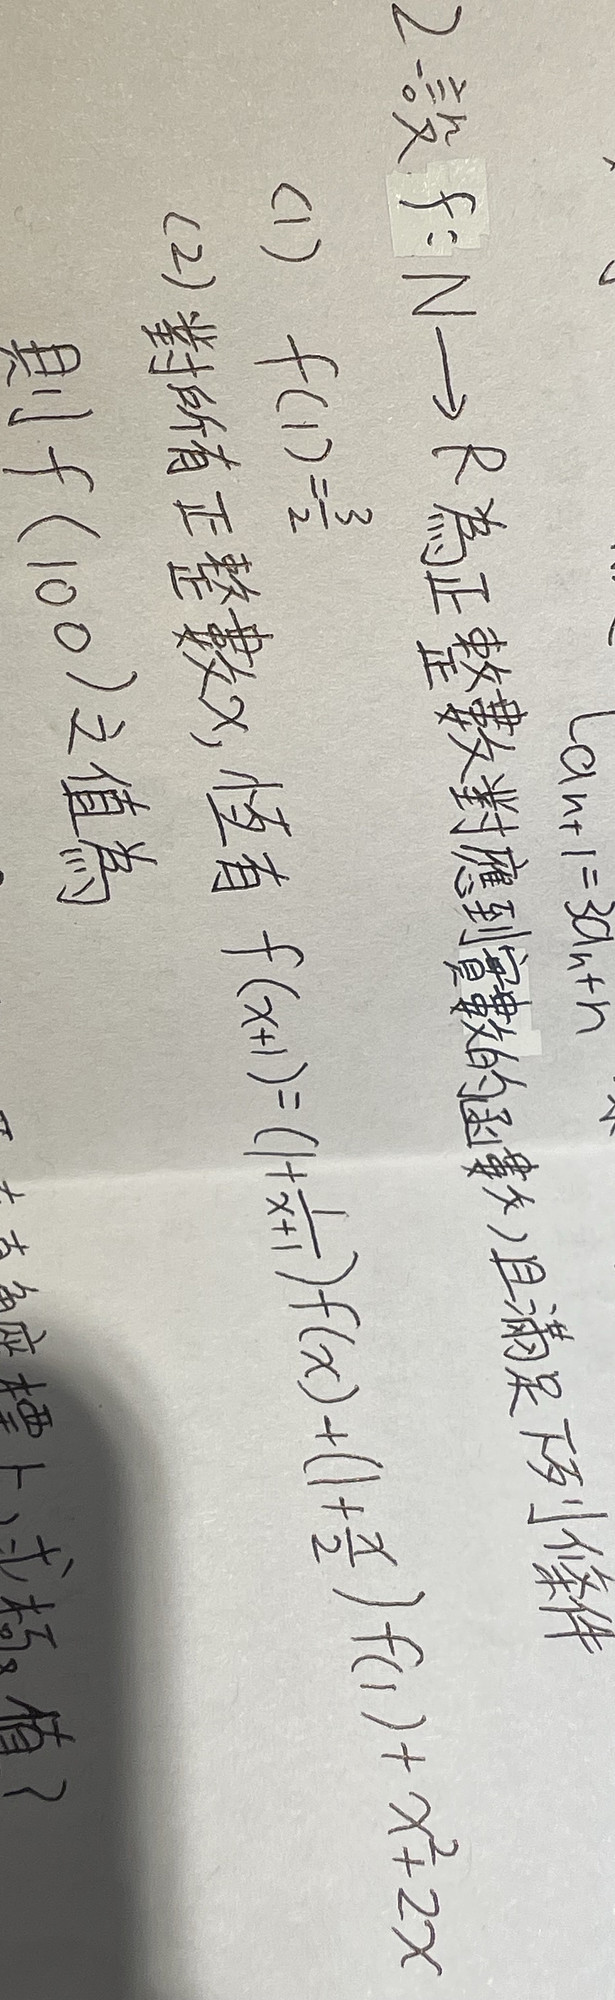 a_{n+1}=3a_n+n
2. 設 f:N→R 為正整數對應到實數的函數,且滿足下列條件
(1) f(1)=3/2
(2) 對所有正整數x,恆有 f(x+1)=(1+1/(x+1))f(x)+(1+x/2)f(1)+x²+2x
則 f(100)之值為
座標上,求極值?